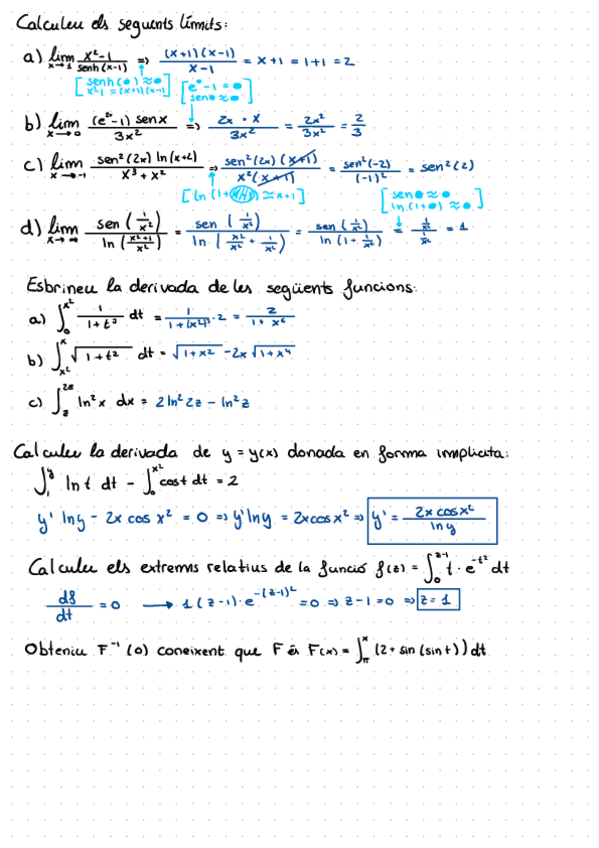 Calculeu els seguents límits:
a) lim x→1 x²-1 / senh(x-1) => (x+1)(x-1) / x-1 = x+1 = 1+1 = 2
[senh(●) ≈ ● x²-1 = (x+1)(x-1)] [e^● -1 = ● sen● ≈ ●]
b) lim x→0 (e²ˣ-1) senx / 3x² => 2x · x / 3x² = 2x² / 3x² = 2/3
c) lim x→-1 sen²(2x) ln(x+2) / x³+x² => sen²(2x)(x+1) / x²(x+1) = sen²(-2) / (-1)² = sen²(2)
[sen● ≈ ● ln(1+●) ≈ ●]
d) lim x→∞ sen(1/x²) / ln(x²+1/x²) = sen(1/x²) / ln(x²/x² + 1/x²) = sen(1/x²) / ln(1+1/x²) = 1/x² / 1/x² = 1
Esbrineu la derivada de les següents funcions:
a) ∫₀^x² 1/1+t³ dt = 1/1+(x²)³ · 2 = 2/1+x⁶
b) ∫_x²^x √1+t² dt = √1+x² -2x √1+x⁴
c) ∫_z^2z ln²x dx = 2ln²2z - ln²z
Calculeu la derivada de y = y(x) donada en forma implícita:
∫₁^y ln t dt - ∫₀^x² cost dt = 2
y' lny - 2x cos x² = 0 => y'lny = 2xcosx² => y' = 2x cosx² / lny
Calculeu els extrems relatius de la funció f(z) = ∫₀^z-1 t · e^-t² dt
df/dt = 0 → 1(z-1)·e^-(z-1)² = 0 => z-1 = 0 => z = 1
Obteniu F⁻¹(0) coneixent que F és F(x) = ∫_π^x (2+ sin(sint))dt